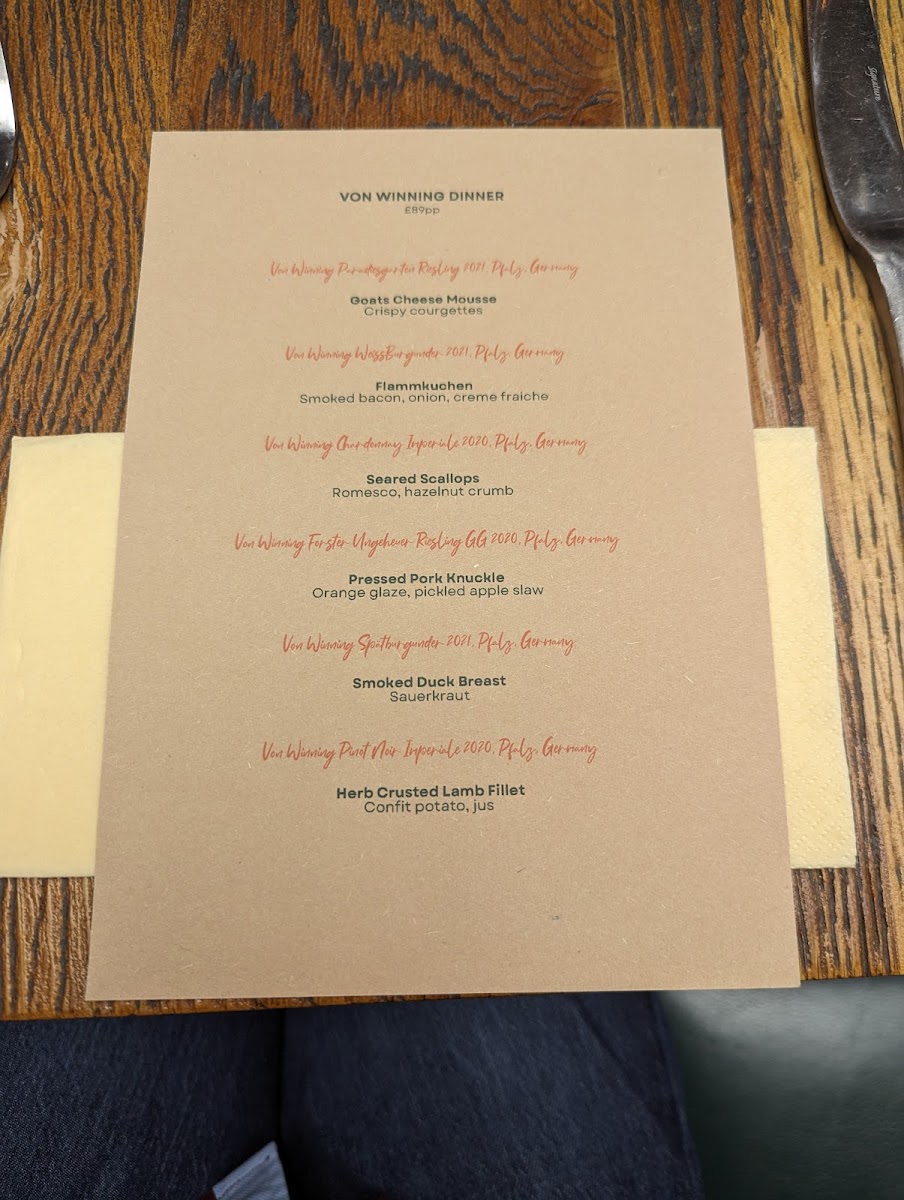 VON WINNING DINNER
£89pp
Von Winning Paradiesgarten Riesling 2021, Pfalz, Germany
Goats Cheese Mousse
Crispy courgettes
Von Winning WeissBurgunder 2021, Pfalz, Germany
Flammkuchen
Smoked bacon, onion, creme fraiche
Von Winning Chardonnay Imperiale 2020, Pfalz, Germany
Seared Scallops
Romesco, hazelnut crumb
Von Winning Forster Ungeheuer Riesling GG 2020, Pfalz, Germany
Pressed Pork Knuckle
Orange glaze, pickled apple slaw
Von Winning Spatburgunder 2021, Pfalz, Germany
Smoked Duck Breast
Sauerkraut
Von Winning Pinot Noir Imperiale 2020, Pfalz, Germany
Herb Crusted Lamb Fillet
Confit potato, jus
Signature